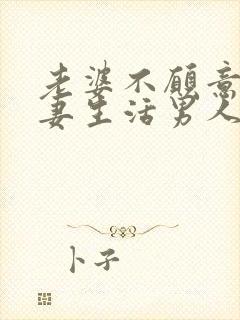 老婆不愿意
妻生活男人
卜子